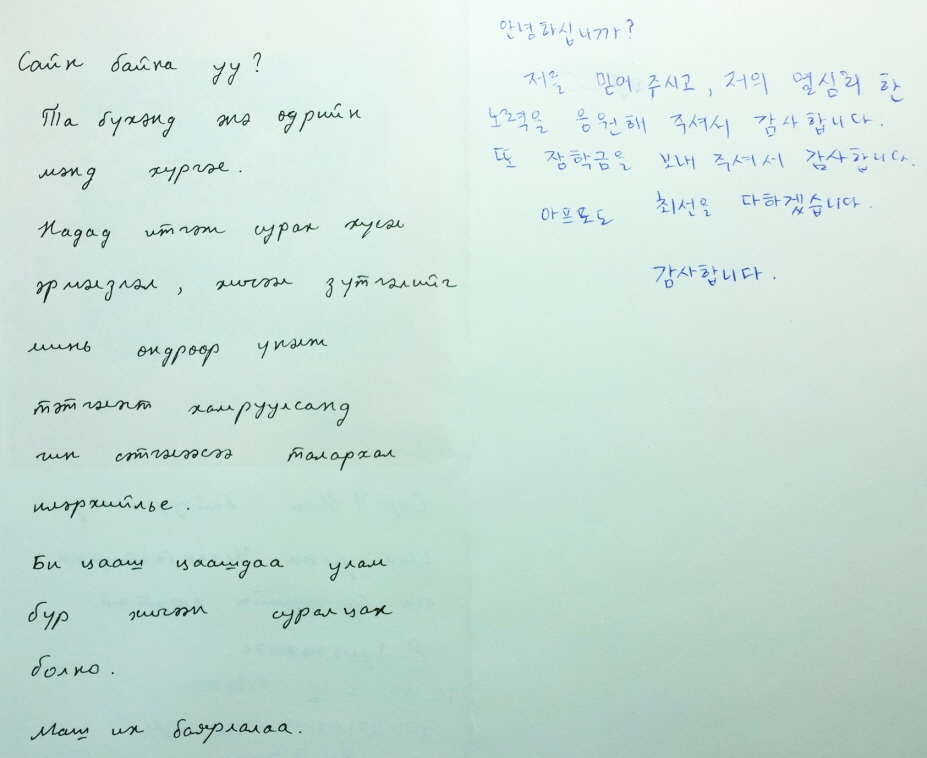 Сайн байна уу?
Та бүхэнд энэ өдрийн
мэнд хүргэе.
Надад итгэж сурах хүсэл
эрмэлзлэл, хичээл зүтгэлийг
минь өндрөөр үнэлж
тэтгэлэгт хамруулсанд
чин сэтгэлээсээ талархал
илэрхийлье.
Би цааш цаашдаа улам
бүр хичээн суралцах
болно.
Маш их баярлалаа.
안녕하십니까?
저를 믿어 주시고, 저의 열심히 한
노력을 응원해 주셔서 감사합니다.
또 장학금을 보내 주셔서 감사합니다.
아프로도 최선을 다하겠습니다.
감사합니다.